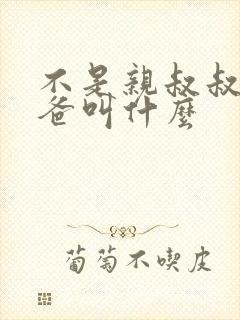 不是親叔叔
爸叫什麼
葡萄不喫皮